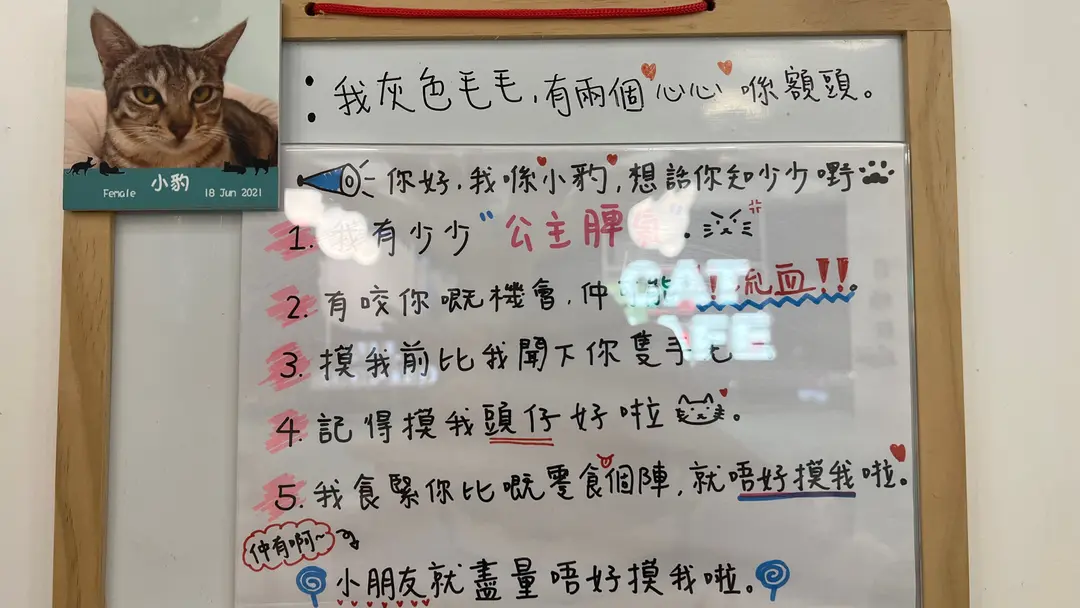 小豹
Female 18 Jun 2021
：我灰色毛毛，有兩個心心喺額頭。
你好，我喺小豹，想話你知少少嘢
1. 我有少少“公主脾氣”.
2. 有咬你嘅機會，仲 能 流血!!。
3. 摸我前比我聞下你隻手先
4. 記得摸我頭仔好啦。
5. 我食緊你比嘅零食個陣，就唔好摸我啦。
仲有啊~
小朋友就盡量唔好摸我啦。
CAT
CAFE